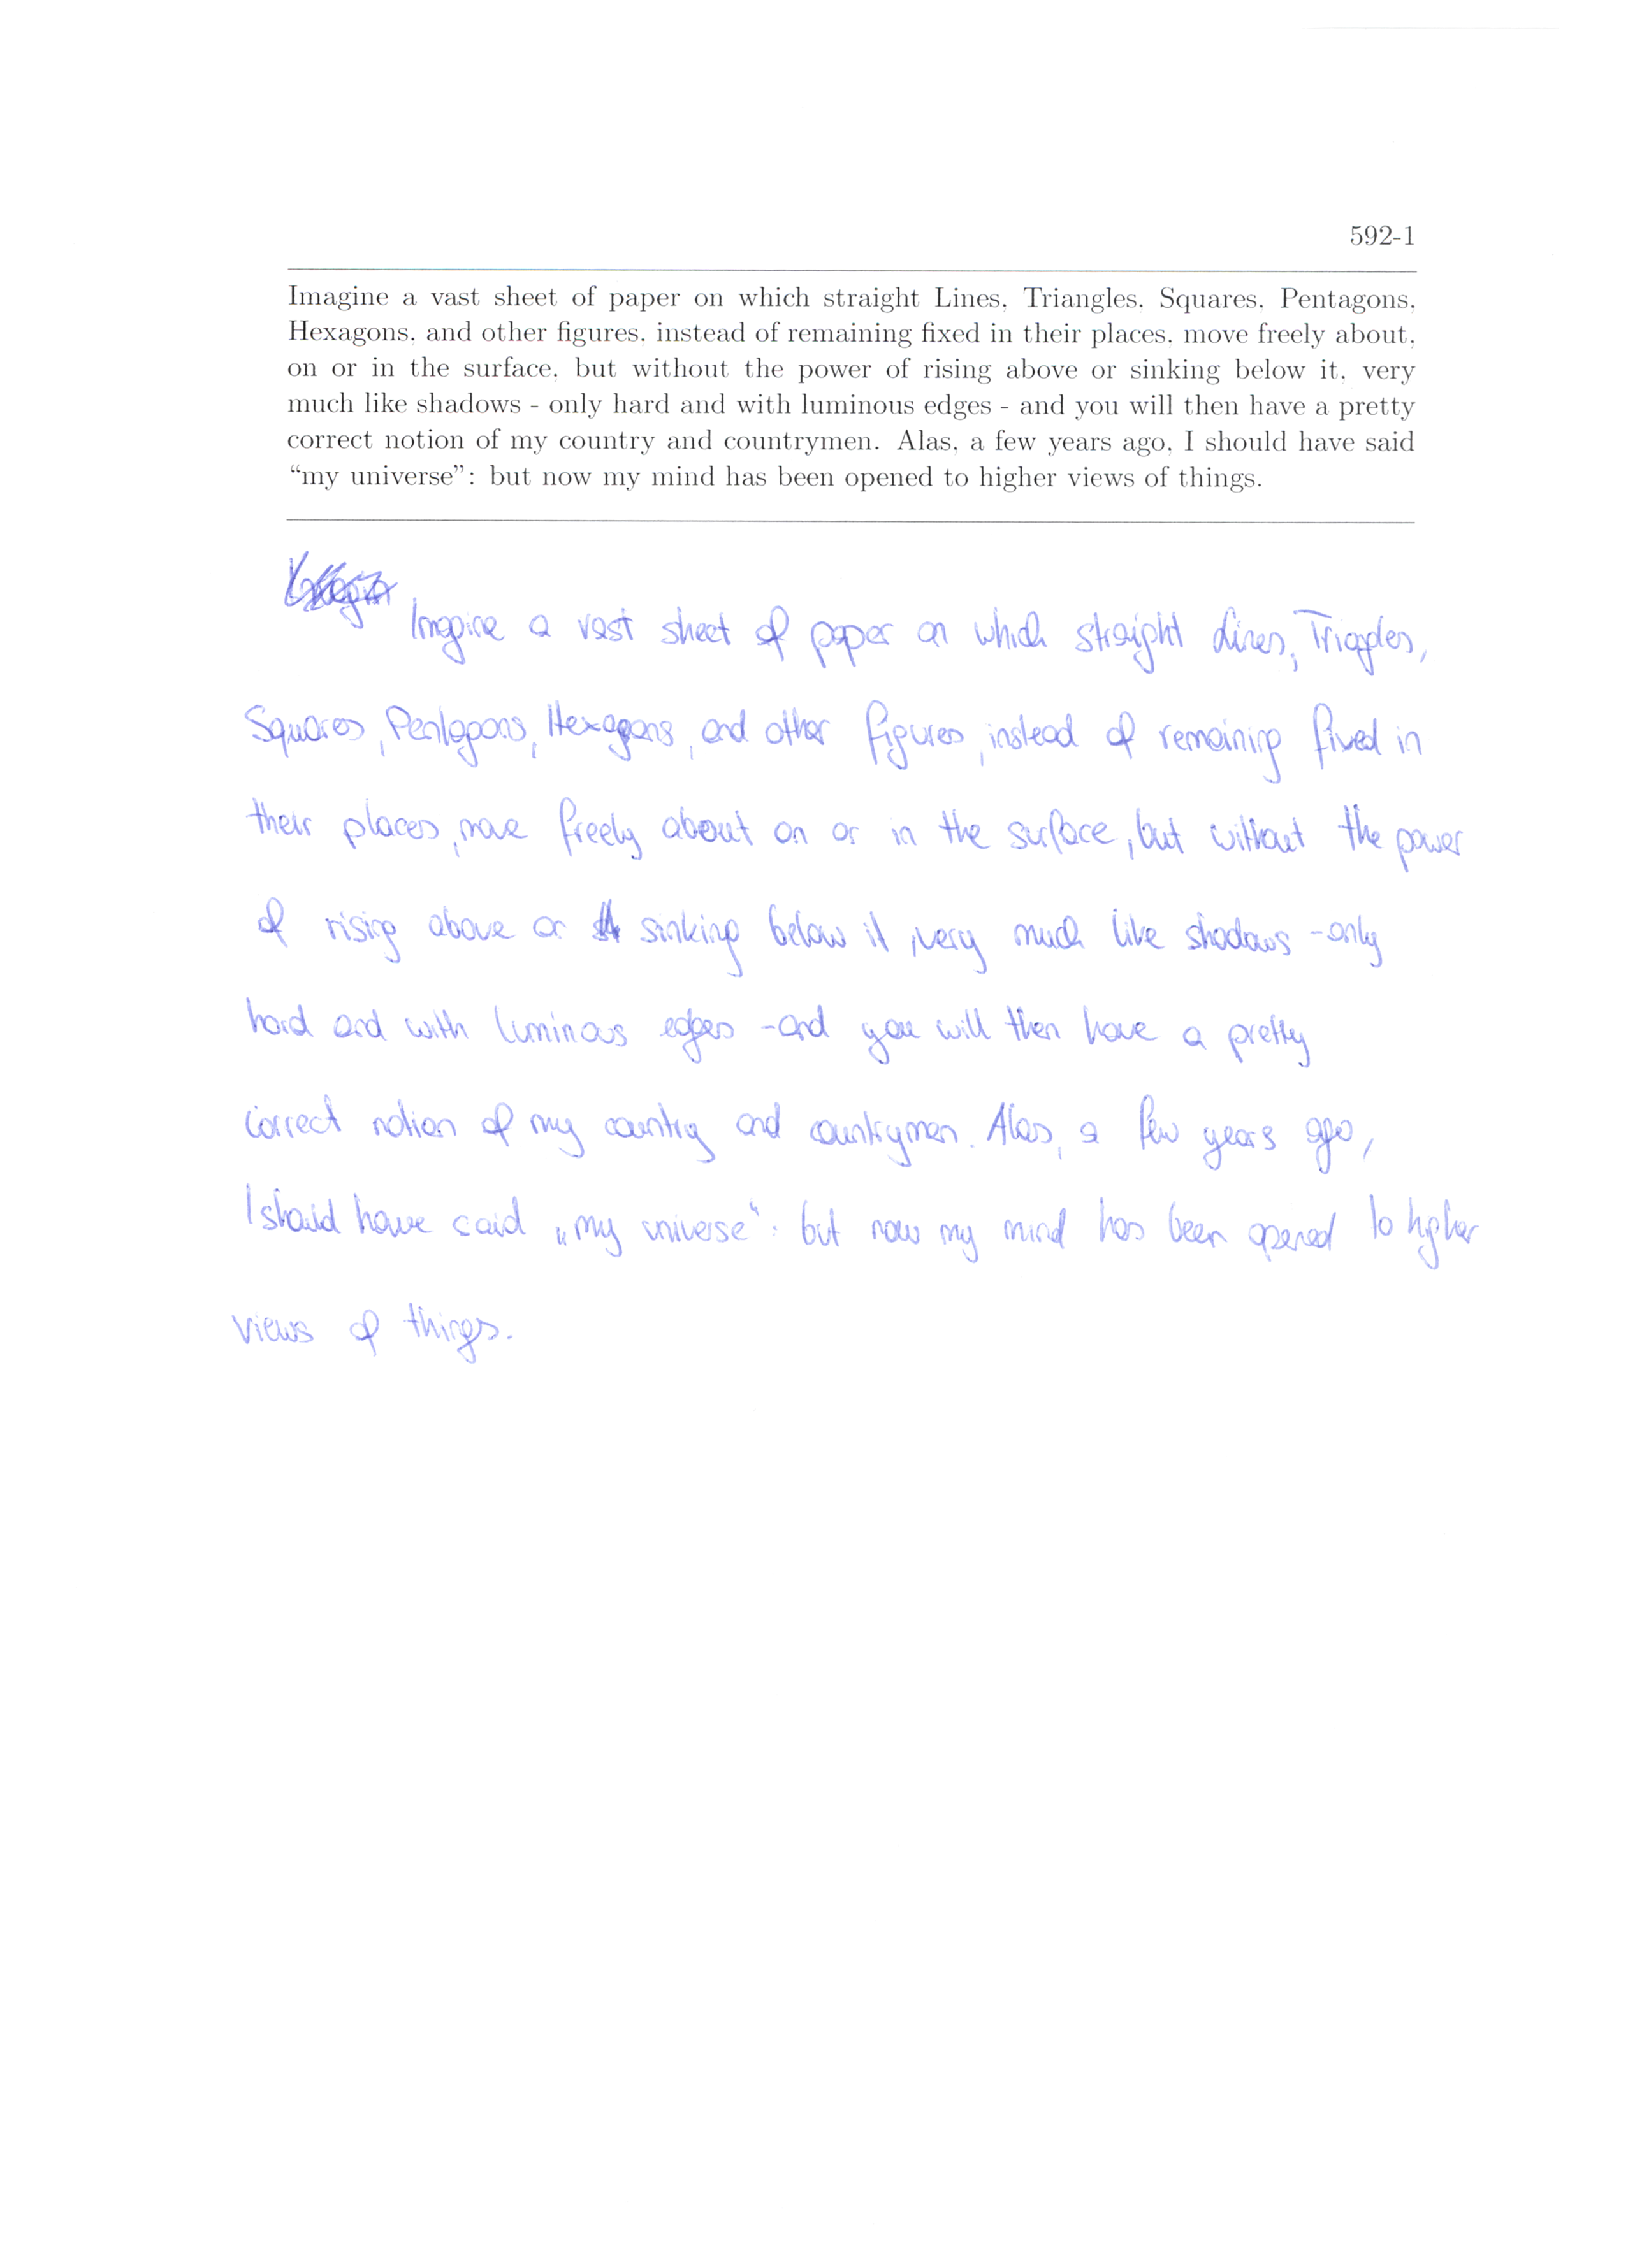 592-1
Imagine a vast sheet of paper on which straight Lines, Triangles, Squares, Pentagons,
Hexagons, and other figures, instead of remaining fixed in their places, move freely about,
on or in the surface, but without the power of rising above or sinking below it, very
much like shadows - only hard and with luminous edges - and you will then have a pretty
correct notion of my country and countrymen. Alas, a few years ago, I should have said
“my universe”: but now my mind has been opened to higher views of things.
Imagine a vast sheet of paper on which straight Lines, Triangles,
Squares, Pentagons, Hexagons, and other figures, instead of remaining fixed in
their places, move freely about on or in the surface, but without the power
of rising above or sinking below it, very much like shadows - only
hard and with luminous edges - and you will then have a pretty
correct notion of my country and countrymen. Alas, a few years ago,
I should have said „my universe“: but now my mind has been opened to higher
views of things.